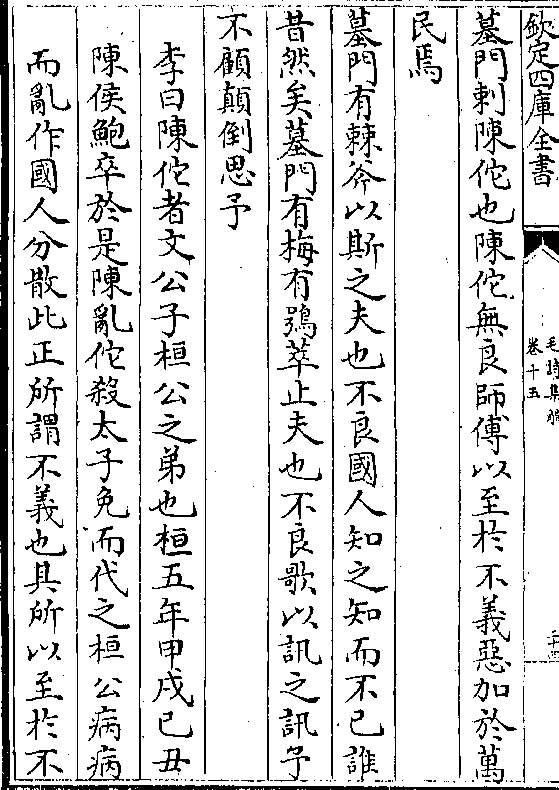 欽定四庫全書
毛詩集解
卷十五
墓門刺陳佗也陳佗無良師傅以至於不義惡加於萬
民焉
墓門有棘斧以斯之夫也不良國人知之知而不已誰
昔然矣墓門有梅有鴞萃止夫也不良歌以訊之訊予
不顧顛倒思予
李曰陳佗者文公子桓公之弟也桓五年甲戌已丑
陳侯鮑卒於是陳亂佗殺太子免而代之桓公病病
而亂作國人分散此正所謂不義也具所以至於不